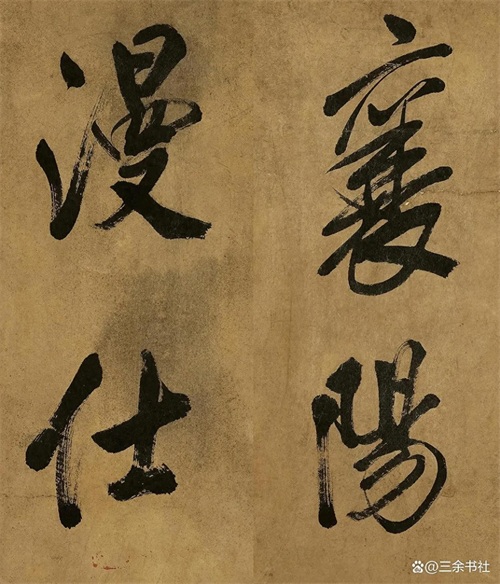 襄陽
漫仕
@三余书社